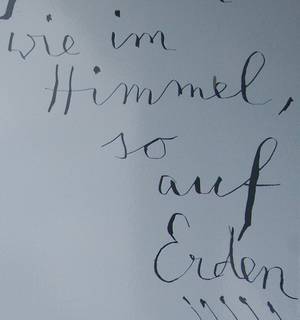 wie im
Himmel,
so
auf
Erden